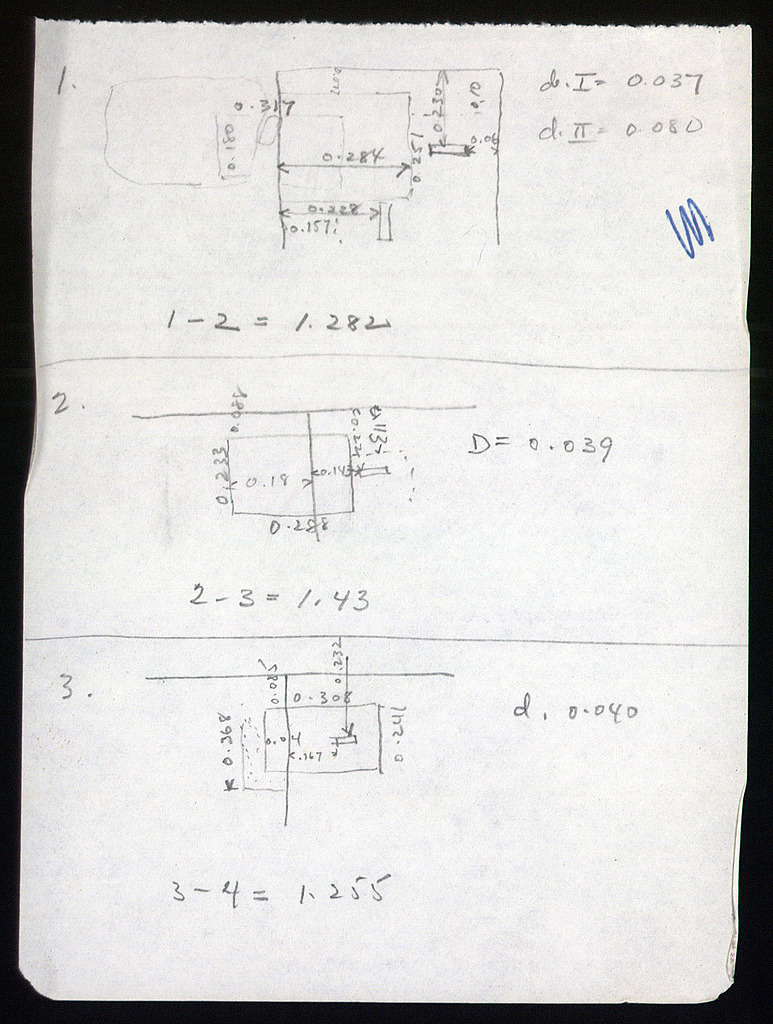 1.
0.317
0.180
0.230
0.10
d.I = 0.037
d.II = 0.080
0.284
0.251
0.228
0.157
1-2 = 1.282
2.
0.088
0.233
0.18
0.288
D = 0.039
2-3 = 1.43
3.
0.085
0.232
0.308
0.368
0.04
.167
0.241
d. 0.040
3-4 = 1.255